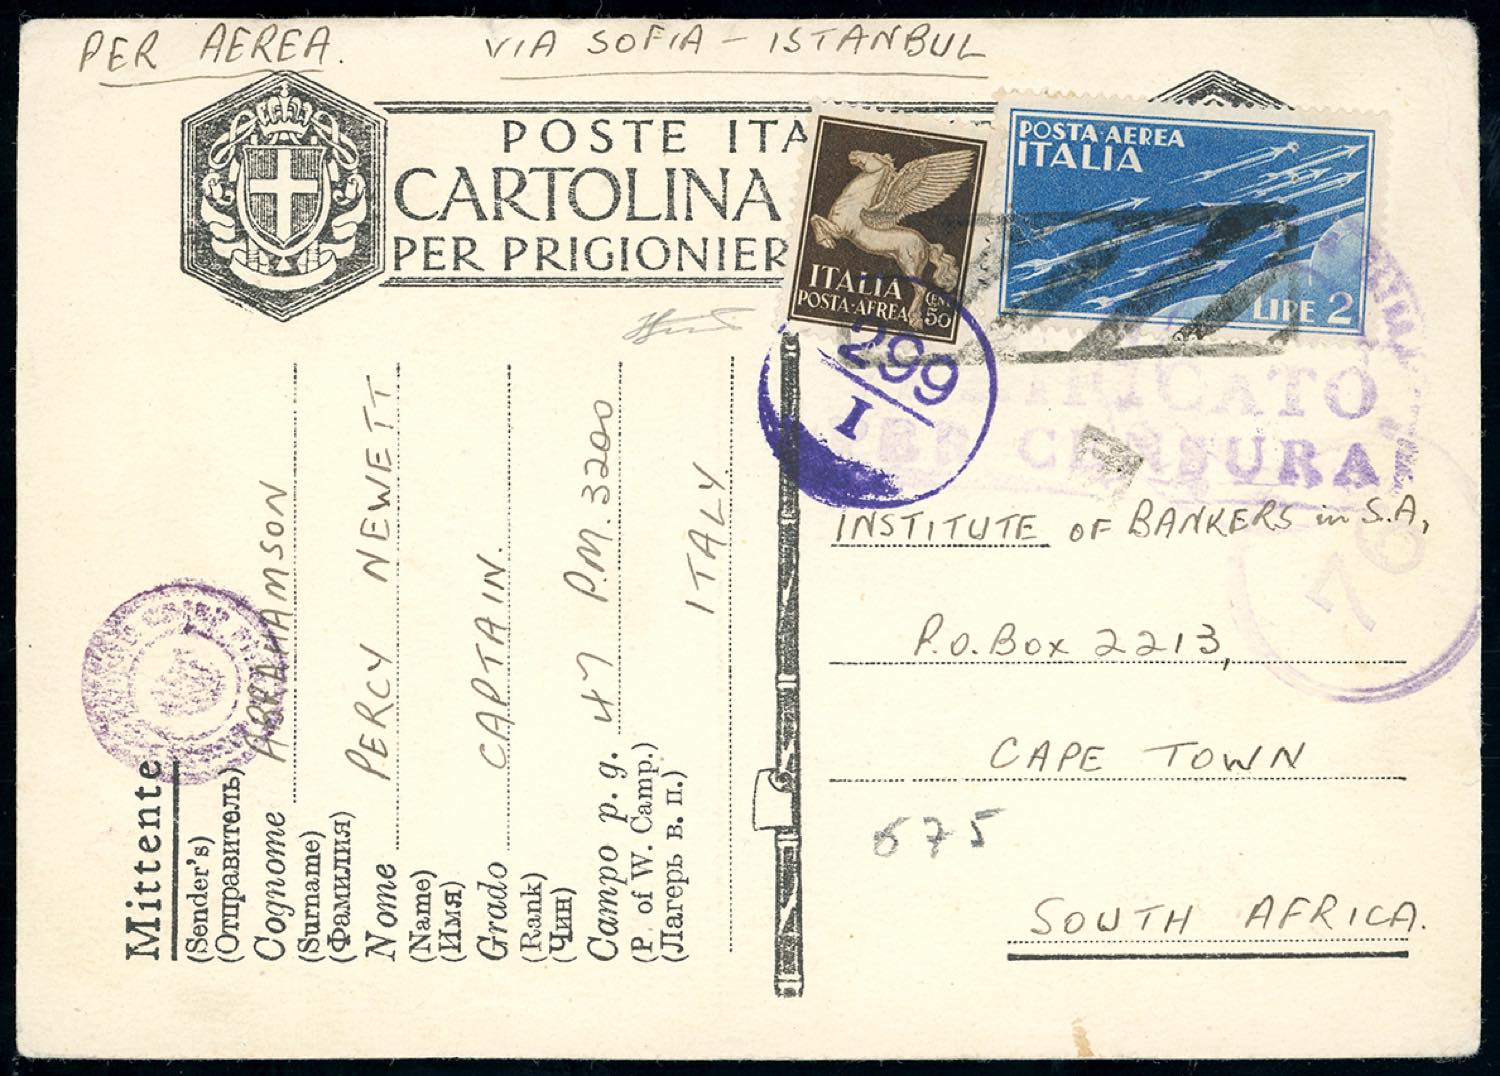 PER AEREA. VIA SOFIA - ISTANBUL
POSTE ITA
CARTOLINA
PER PRIGIONIER
ITALIA
POSTA-AEREA
CENT
50
POSTA-AEREA
ITALIA
LIRE 2
299
I
CATO
PER CENSURA
76
INSTITUTE OF BANKERS in S.A,
P.O. Box 2213,
CAPE TOWN
675
SOUTH AFRICA.
Mittente
(Sender's)
(Отправитель)
Cognome ABRAHAMSON
(Surname)
(Фамилия)
Nome PERCY NEWETT
(Name)
(Имя)
Grado CAPTAIN.
(Rank)
(Чин)
Campo p. g. 47 P.M. 3200
(P. of W. Camp.)
(Лагерь в. п.)
ITALY